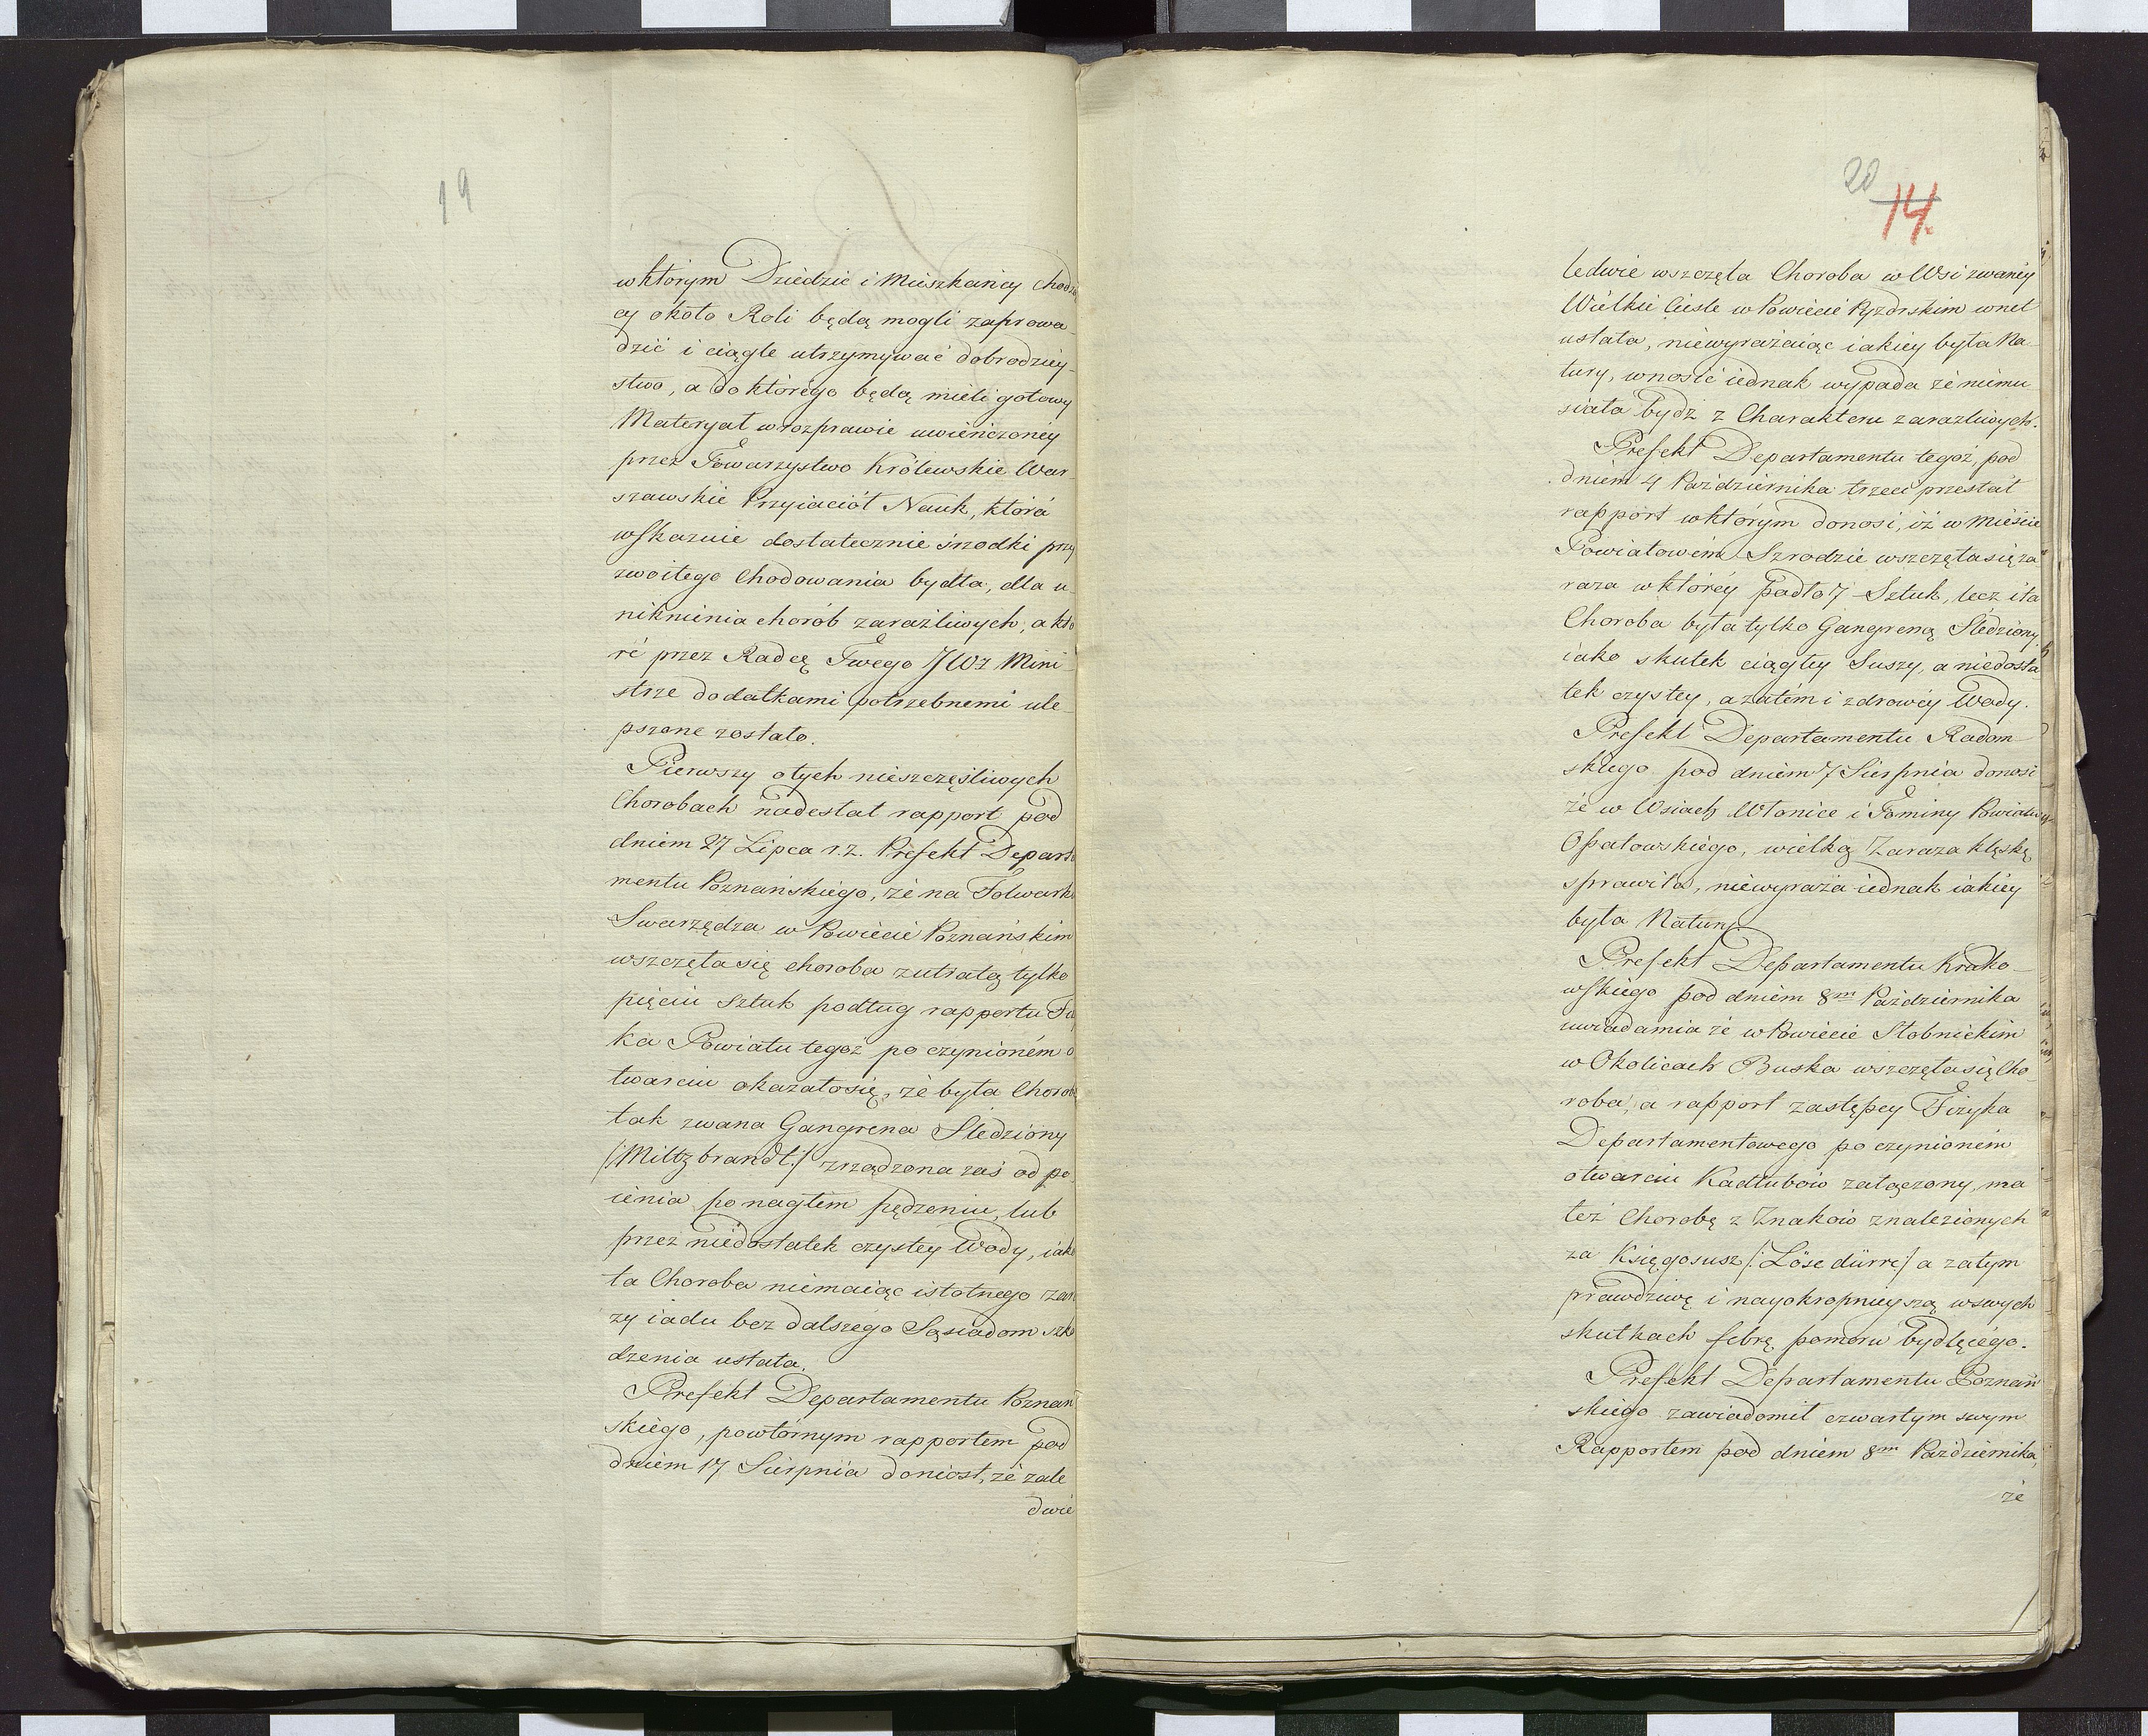 19
w którym Dziedzic i Mieszkańcy chodzą
cy około Roli będą mogli zaprowa
dzić i ciągle utrzymywać dobrodziey-
stwo, a do którego będą mieli gotowy
Materyał w rozprawie uwieńczoney
przez Towarzystwo Królewskie War-
szawskie Przyiaciół Nauk, która
wskazuie dostatecznie śrzodki przy
zwoitego Chodowania bydła, dla u-
niknienia chorób zaraźliwych, a któ
ré przez Radcę Twego JWz Mini-
strze dodatkami potrzebnemi ule-
pszone zostało.
Pierwszy o tych nieszczęśliwych
Chorobach nadesłał rapport pod
dniem 27 Lipca r. z. Prefekt Departa
mentu Poznańskiego, że na Folwark
Swarzędza w Powiecie Poznańskim
wszczęła się choroba z utratą tylko
pięciu sztuk podług rapportu Fizy
ka Powiatu tegoż po czynioném o
twarciu okazało się, że była Chorob
tak zwana Gangrena Sledziony
/:Miltzbrandt:/ zrządzona zaś od po-
ienia po nagłem pędzeniu, lub
przez niedostatek czystey Wody, iako
ta Choroba niemaiąc istotnego zara
zy iadu bez dalszego Sąsiadom szko
dzenia ustała.
Prefekt Departamentu Poznań
skiego, powtórnym rapportem pod
dniem 17 Sierpnia doniosł, że zale
dwie
20
14.
ledwie wszczęta Choroba w Wsi zwaney
Wielkie Cieśle w Powiecie Pyzdrskim wnet
ustała, niewyrażaiąc iakiey była Na-
tury, wnosić iednak wypada że niemu
siała bydz z Charakteru zaraźliwych.
Prefekt Departamentu tegoż, pod
dniem 4 Października trzeci przesłał
rapport w którym donosi, iż w Mieście
Powiatowém Szrodzie wszczęła się za
raza w którey padło 7 Sztuk, lecz i ta
Choroba była tylko Gangreną Śledziony
iako skutek ciągłey Suszy, a niedosta
tek czystey, a zatém i zdrowéy Wody.
Prefekt Departamentu Radom-
skiego pod dniem 7 Sierpnia donosi
że w Wsiach Włonice i Gominy Powiatu
Opatowskiego, wielką Zaraza klęskę
sprawiła, niewyraża iednak iakiey
była Natury.
Prefekt Departamentu Krako-
wskiego pod dniem 8m Października
uwiadamia że w Powiecie Stobnickim
w Okolicach Buska wszczęła się Cho-
roba, a rapport zastępcy Fizyka
Departamentowego po czynionem
otwarciu Kadłubów załączony, ma
też Chorobę z Znaków znalezionych
za Księgosusz /:Löse dürre:/ a zatym
prawdziwę i nayokropnieyszą w swych
skutkach febrę pomoru bydlęcego.
Prefekt Departamentu Poznań
skiego zawiadomił czwartym swym
Rapportem pod dniem 8m Października,
że